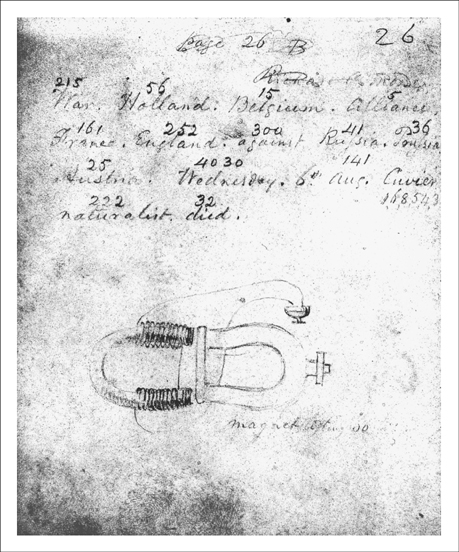 page 26 B
26
215 56 15 5
War. Holland. Belgium. Alliance.
161 252 300 41 36
France. England. against Russia.
25 4030 141
Austria. Wednesday. 6th Aug. Cuvier
222 32
naturalist. died.
magnet